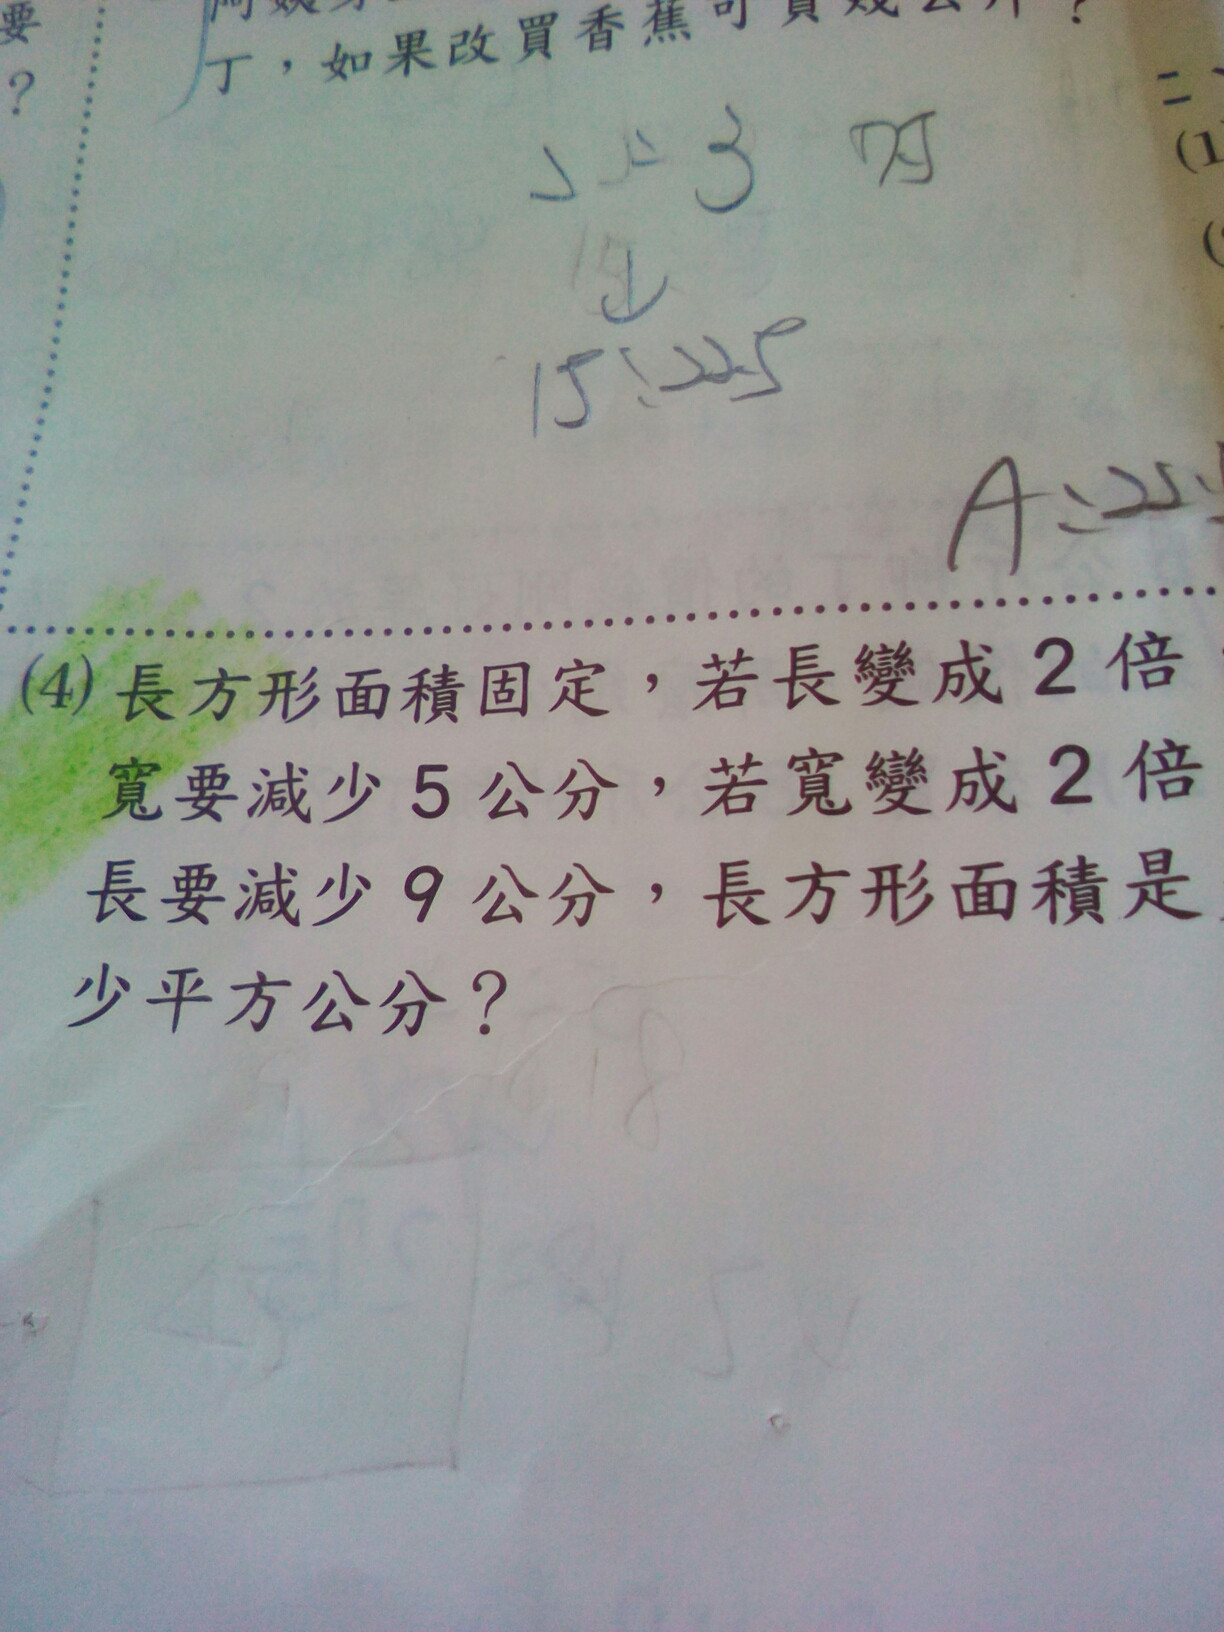 要
?
丁，如果改買香蕉可買幾公斤？
二、
(1)
2 : 3
↓
15 : 22.5
(4) 長方形面積固定，若長變成 2 倍
寬要減少 5 公分，若寬變成 2 倍
長要減少 9 公分，長方形面積是
少平方公分？